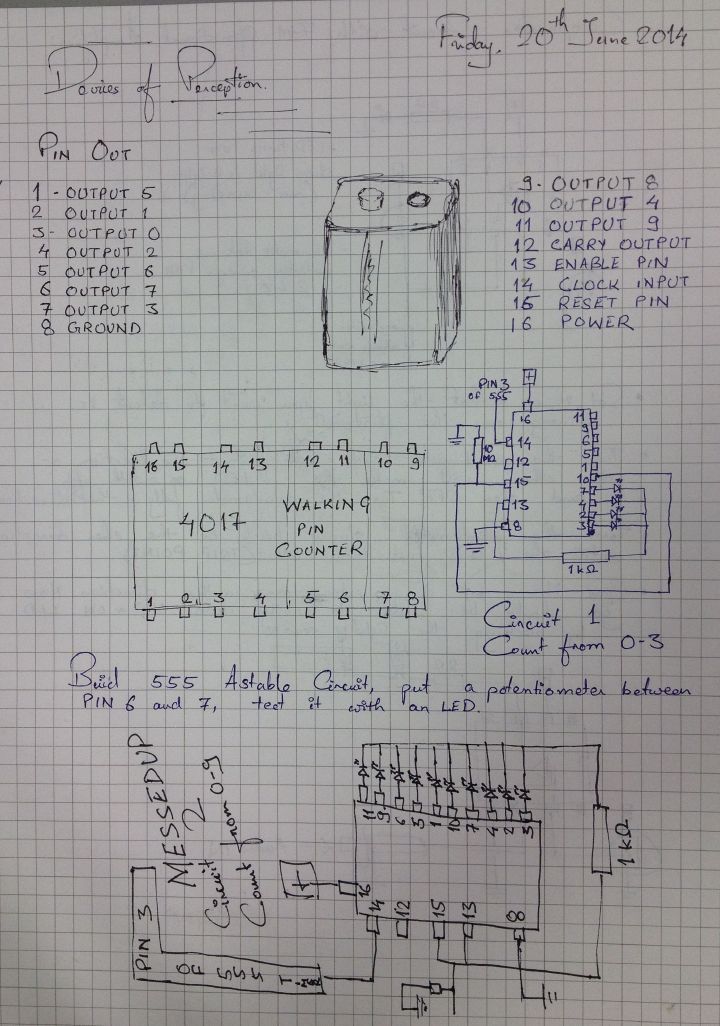 Friday, 20th June 2014
Devices of Perception.
PIN OUT
1 - OUTPUT 5
2 OUTPUT 1
3 - OUTPUT 0
4 OUTPUT 2
5 OUTPUT 6
6 OUTPUT 7
7 OUTPUT 3
8 GROUND
9 - OUTPUT 8
10 OUTPUT 4
11 OUTPUT 9
12 CARRY OUTPUT
13 ENABLE PIN
14 CLOCK INPUT
15 RESET PIN
16 POWER
16 15 14 13 12 11 10 9
4017
WALKING
PIN
COUNTER
1 2 3 4 5 6 7 8
PIN 3
OF 555
+
16
14
12
15
13
8
11
9
6
5
1
10
7
4
2
3
10
1kΩ
Circuit 1
Count from 0-3
Buid 555 Astable Circuit, put a potentiometer between
PIN 6 and 7, test it with an LED.
MESSEDUP
2
Circuit
Count from 0-9
PIN 3
+
16
11 9 6 5 1 10 7 4 2 3
14 12 15 13 8
1kΩ